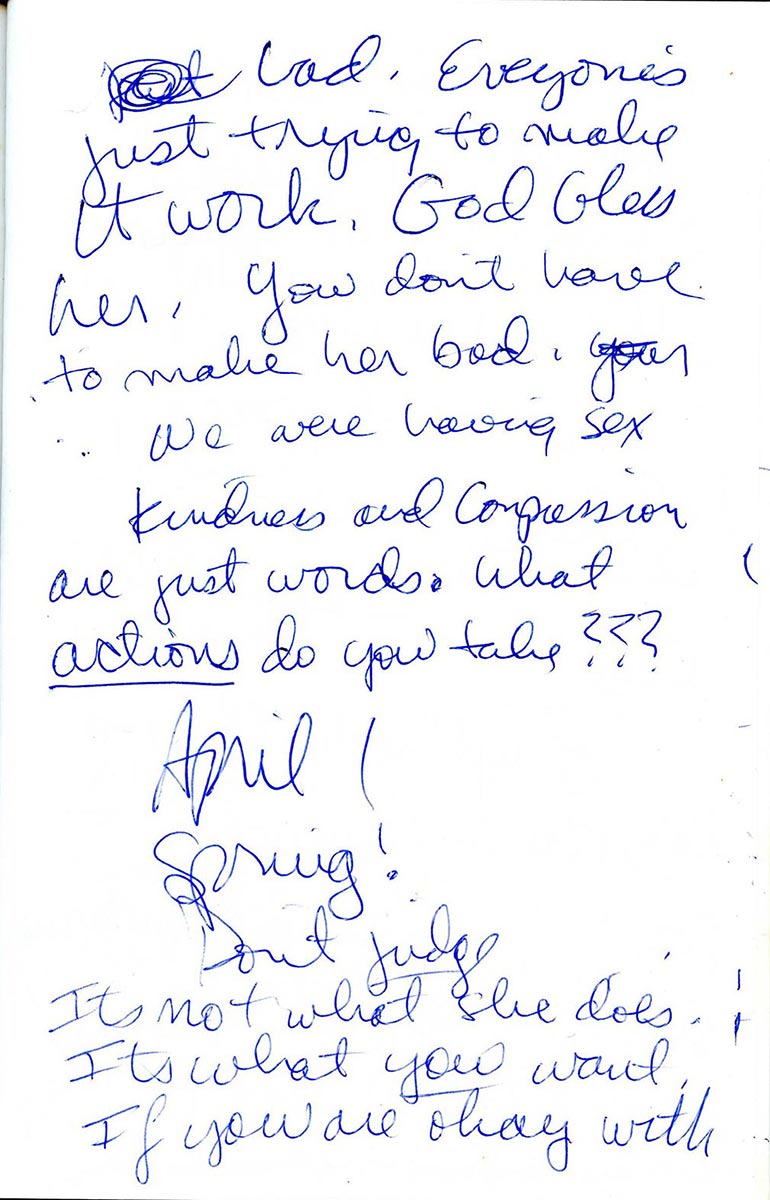 bad. Eveyone's
just trying to make
it work. God bless
her. You don't have
to make her bad.
We were having sex
kindness and Compassion
are just words. What
actions do you take???
April 1
Spring!
Don't judge
Its not what she does.
Its what you want.
If you are okay with